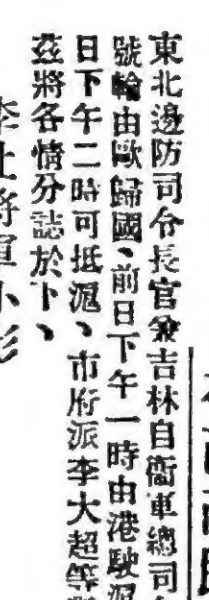 東北邊防司令長官兼吉林自衞軍總司
號輪由歐歸國、前日下午一時由港駛滬
日下午二時可抵滬、市府派李大超等
茲將各情分誌於下、
李杜將軍小影